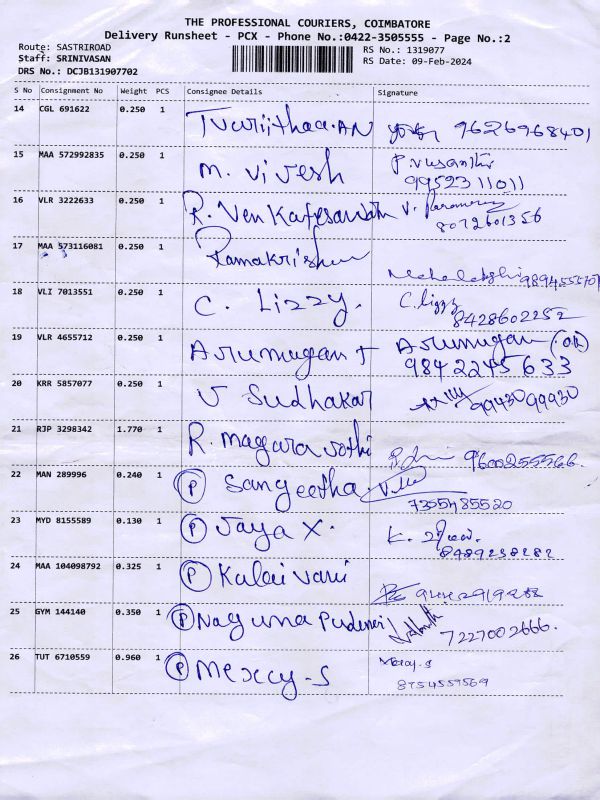 THE PROFESSIONAL COURIERS, COIMBATORE
Delivery Runsheet - PCX - Phone No.:0422-3505555 - Page No.:2
Route: SASTRIROAD
RS No.: 1319077
Staff: SRINIVASAN
RS Date: 09-Feb-2024
DRS No.: DCJB131907702
S No Consignment No Weight PCS Consignee Details Signature
14 CGL 691622 0.250 1 9626968401
15 MAA 572992835 0.250 1 M. Vivesh P. Vusanthi
9952311011
16 VLR 3222633 0.250 1 R. Venkatesawath V.
8072601356
17 MAA 573116081 0.250 1 Ramakrishnan
18 VLI 7013551 0.250 1 C. Lizzy. C. Lizzy
8428602252
19 VLR 4655712 0.250 1 Arumugan T Arumugan
9842245633
20 KRR 5857077 0.250 1 V Sudhakar 9943099930
21 RJP 3298342 1.770 1 R. 9600255566.
22 MAN 289996 0.240 1 P Sangeetha
7305485520
23 MYD 8155589 0.130 1 P Jaya X. K.
8489238282
24 MAA 104098792 0.325 1 P Kalaivani
25 GYM 144140 0.350 1 P Naguma
7227002666.
26 TUT 6710559 0.960 1 P Mercy-S Mercy.S
8754559569